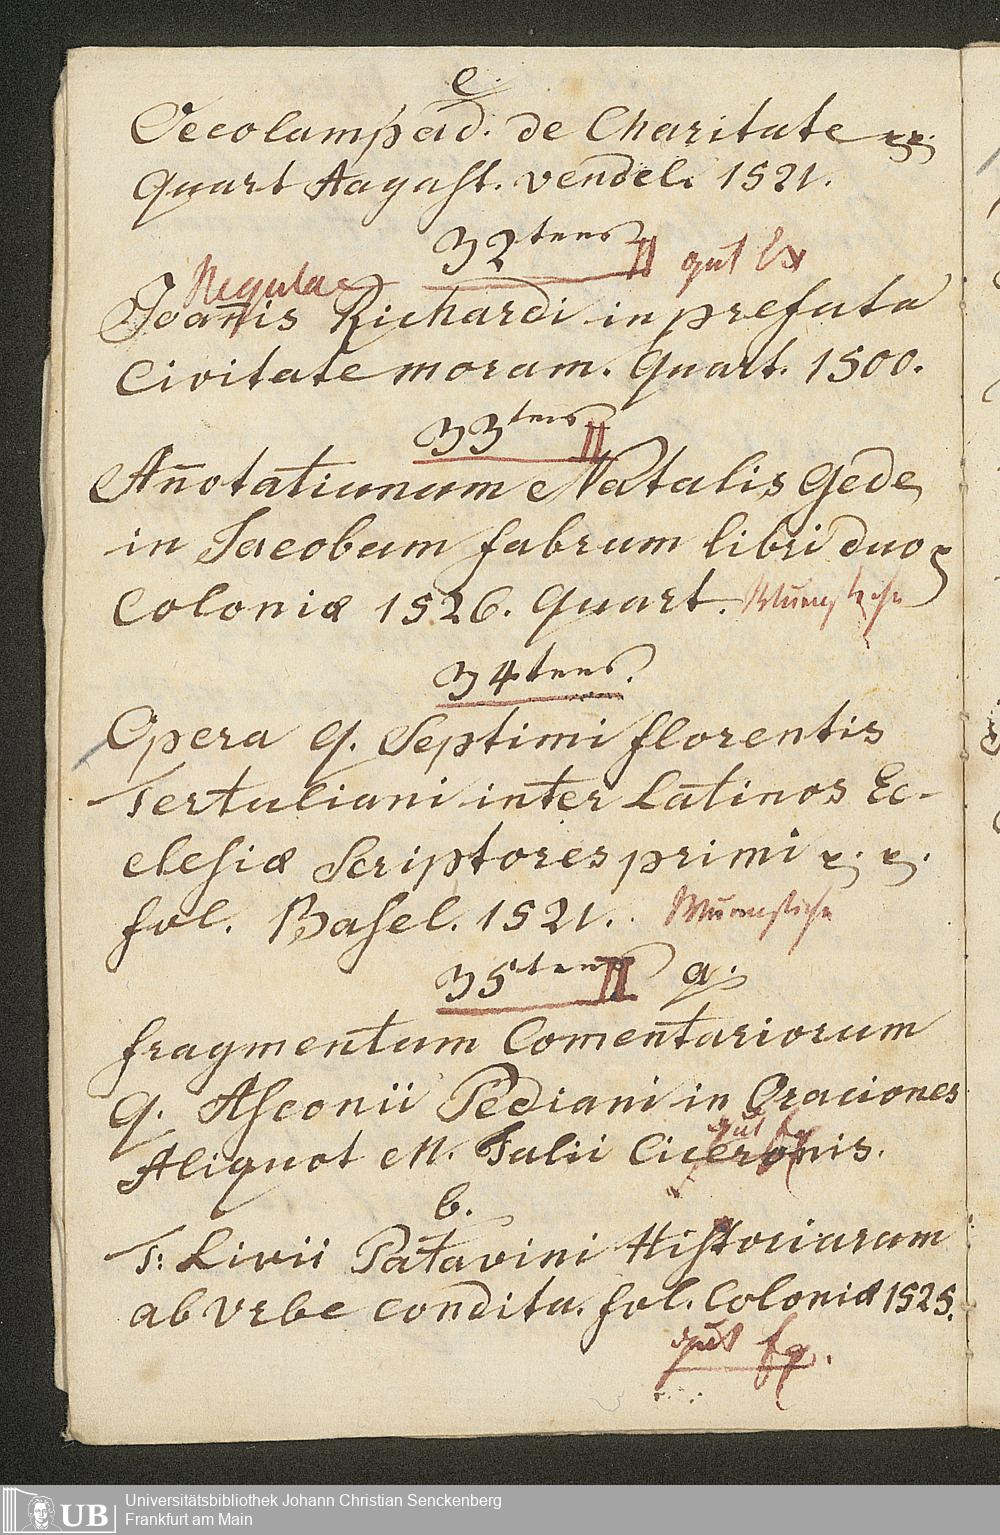 e.
Oecolampad. de Charitate
Quart August. vendel. 1521.
32tens II gut Ex
Regulae
Joan̄is Richardi in prefata
Civitate moram. Quart. 1500.
33tens II
An̄otatiunum Natalis Gede
in Jacobum fabrum libri duo
Coloniæ 1526. Quart. Wurmstiche
34tens.
Opera Q. Septimi florentis
Tertuliani inter Latinos Ec-
clesiæ Scriptores primi
fol. Basel. 1521. Wurmstiche
35tens II a.
fragmentum Comentariorum
Q. Asconii Pediani in Oraciones
gut Ex
Aliquot M. Tulii Ciceronis.
b.
T: Livii Patavini Historiarum
ab Vrbe condita. fol. Coloniæ 1525.
gut Ex.
UB
Universitätsbibliothek Johann Christian Senckenberg
Frankfurt am Main